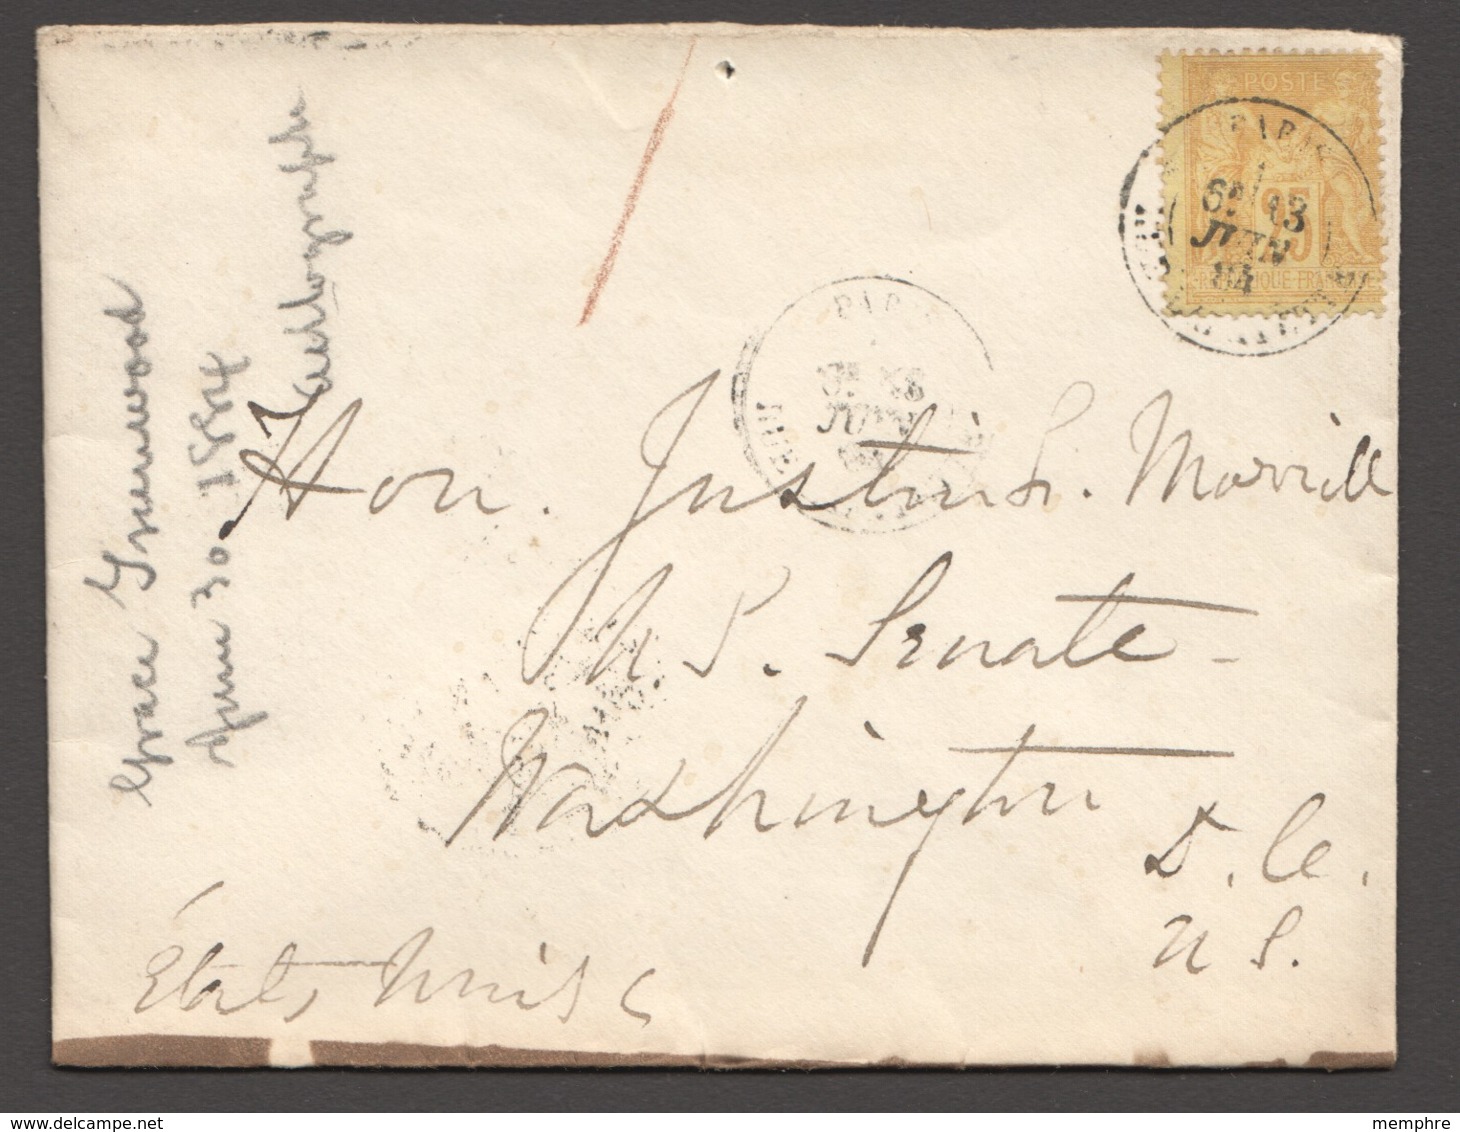 Grace Greenwood
June 30 1884
Autograph
POSTE
25
REPUBLIQUE FRANCAISE
PARIS
6E 13
JUIN
84
PARIS
JUIN
RUE
Hon. Justin S. Morrill
U.S. Senate
Washington
D.C.
U.S.
États Unis
delcampe.net
memphre